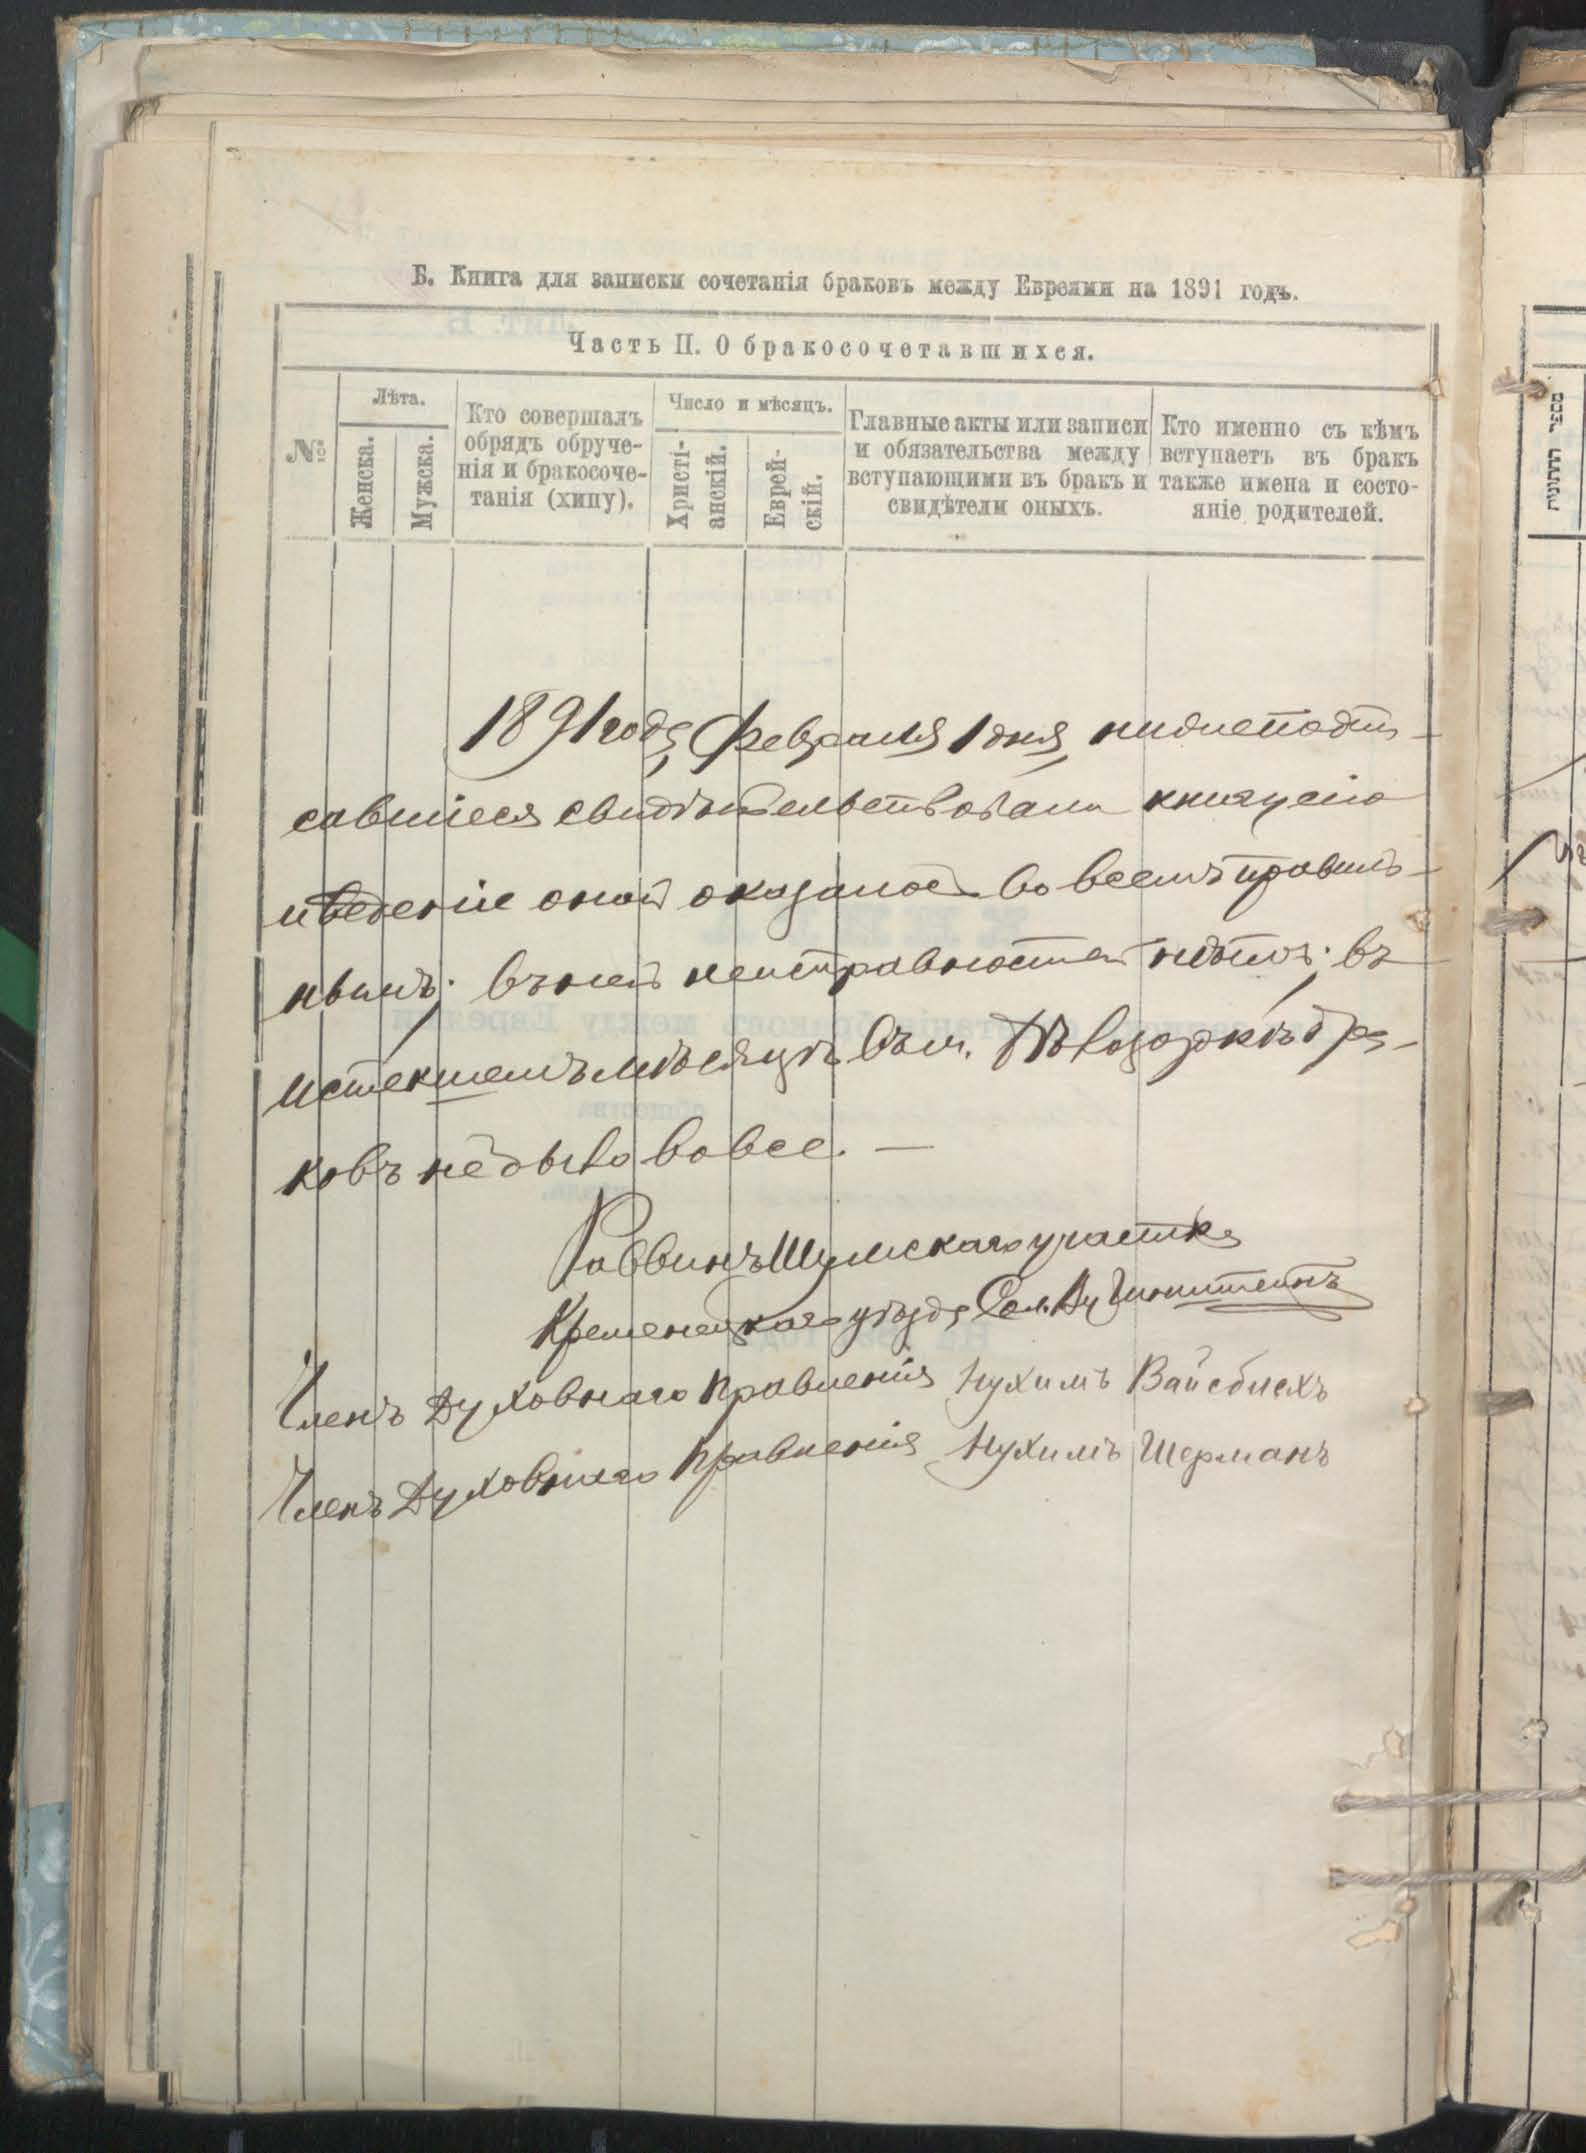 Б. Книга для записки сочетанія браковъ между Евреями на 1891 годъ.
Часть II. О бракосочетавшихся.
№
Лѣта.
Женска.
Мужска.
Кто совершалъ
обрядъ обруче-
нія и бракосоче-
танія (хипу).
Число и мѣсяцъ.
Христі-
анскій.
Еврей-
скій.
Главные акты или записи
и обязательства между
вступающими въ бракъ и
свидѣтели оныхъ.
Кто именно съ кѣмъ
вступаетъ въ бракъ
также имена и состо-
яніе родителей.
1891 года, Февраля 1 дня, нижеподпи-
савшіеся свидѣтельствовали книгу сію
и веденіе оной оказалось во всемъ правиль-
нымъ; въ ней неисправностей нѣтъ; въ
истекшемъ мѣсяцѣ въ м. бра-
ковъ не было вовсе. —
Раввинъ Шумскаго участка
Кременецкаго уѣзда
Членъ Духовнаго Правленія Нухимъ Вайсблехъ
Членъ Духовнаго Правленія Нухимъ Шерманъ